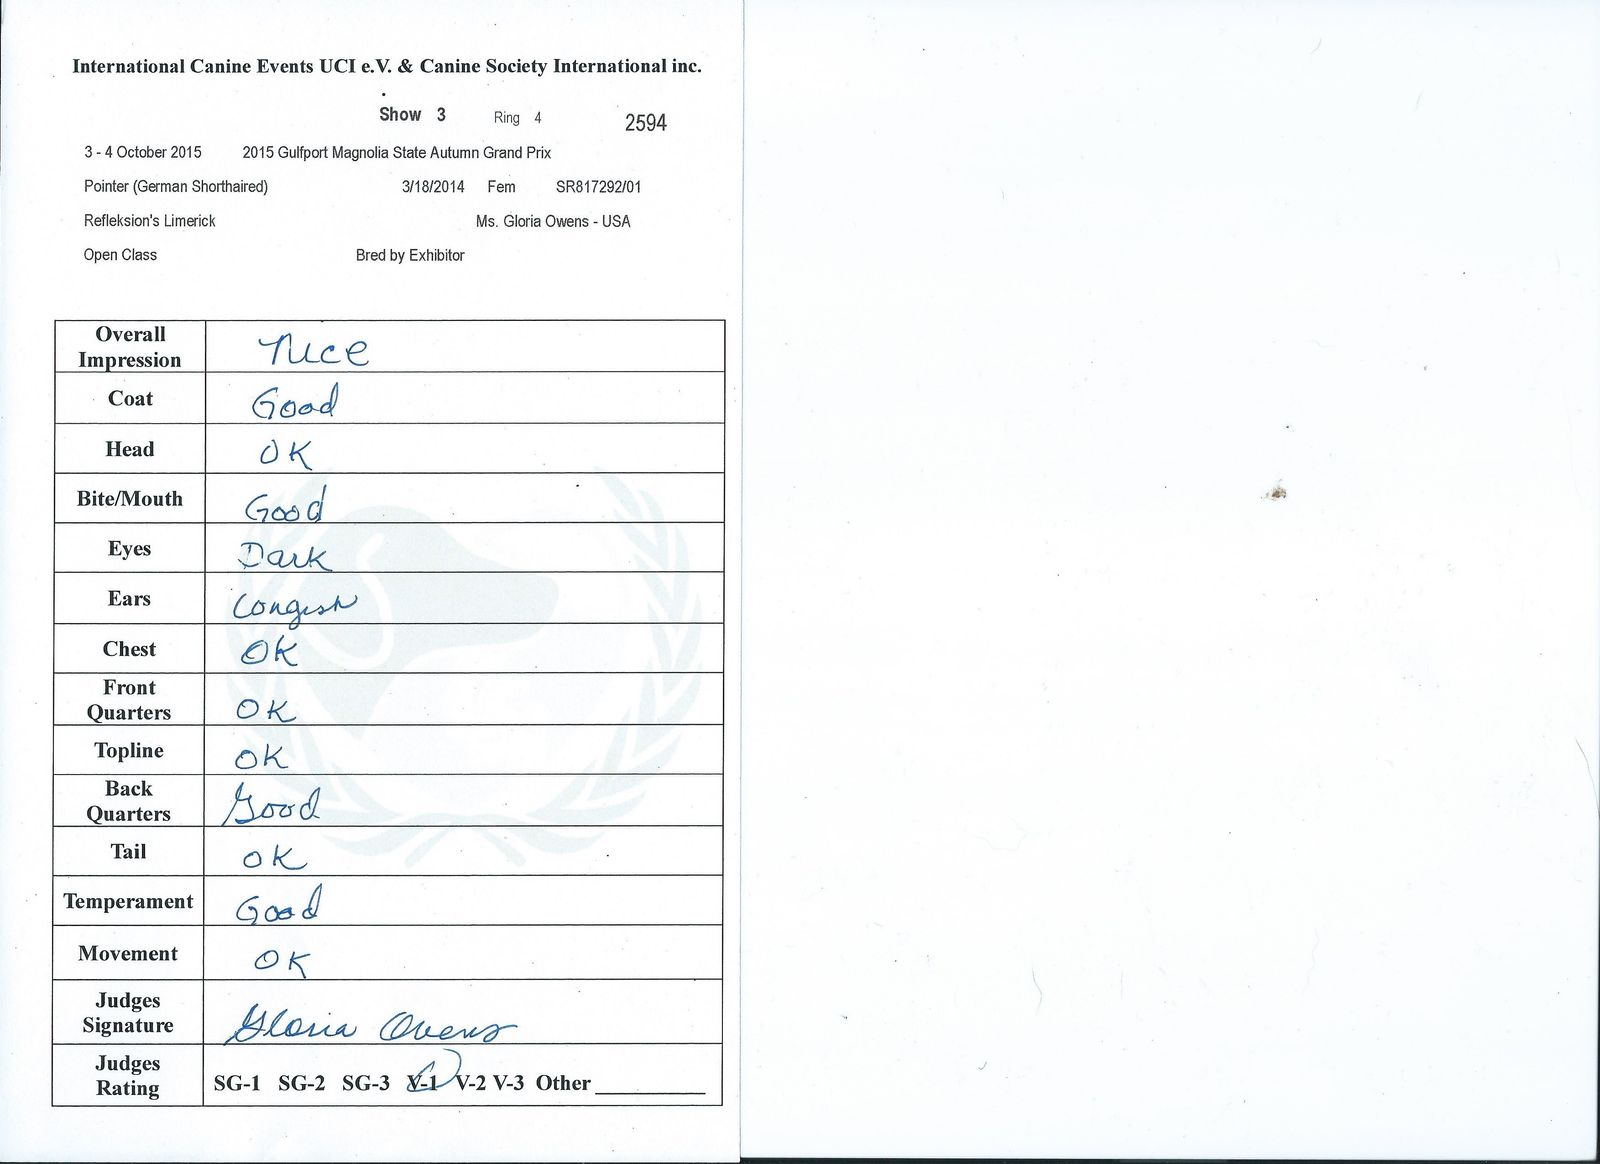 International Canine Events UCI e.V. & Canine Society International inc.
Show 3 Ring 4 2594
3 - 4 October 2015 2015 Gulfport Magnolia State Autumn Grand Prix
Pointer (German Shorthaired) 3/18/2014 Fem SR817292/01
Refleksion's Limerick Ms. Gloria Owens - USA
Open Class Bred by Exhibitor
Overall Impression Nice
Coat Good
Head OK
Bite/Mouth Good
Eyes Dark
Ears Longish
Chest OK
Front Quarters OK
Topline OK
Back Quarters Good
Tail OK
Temperament Good
Movement OK
Judges Signature Gloria Owens
Judges Rating SG-1 SG-2 SG-3 V-1 V-2 V-3 Other